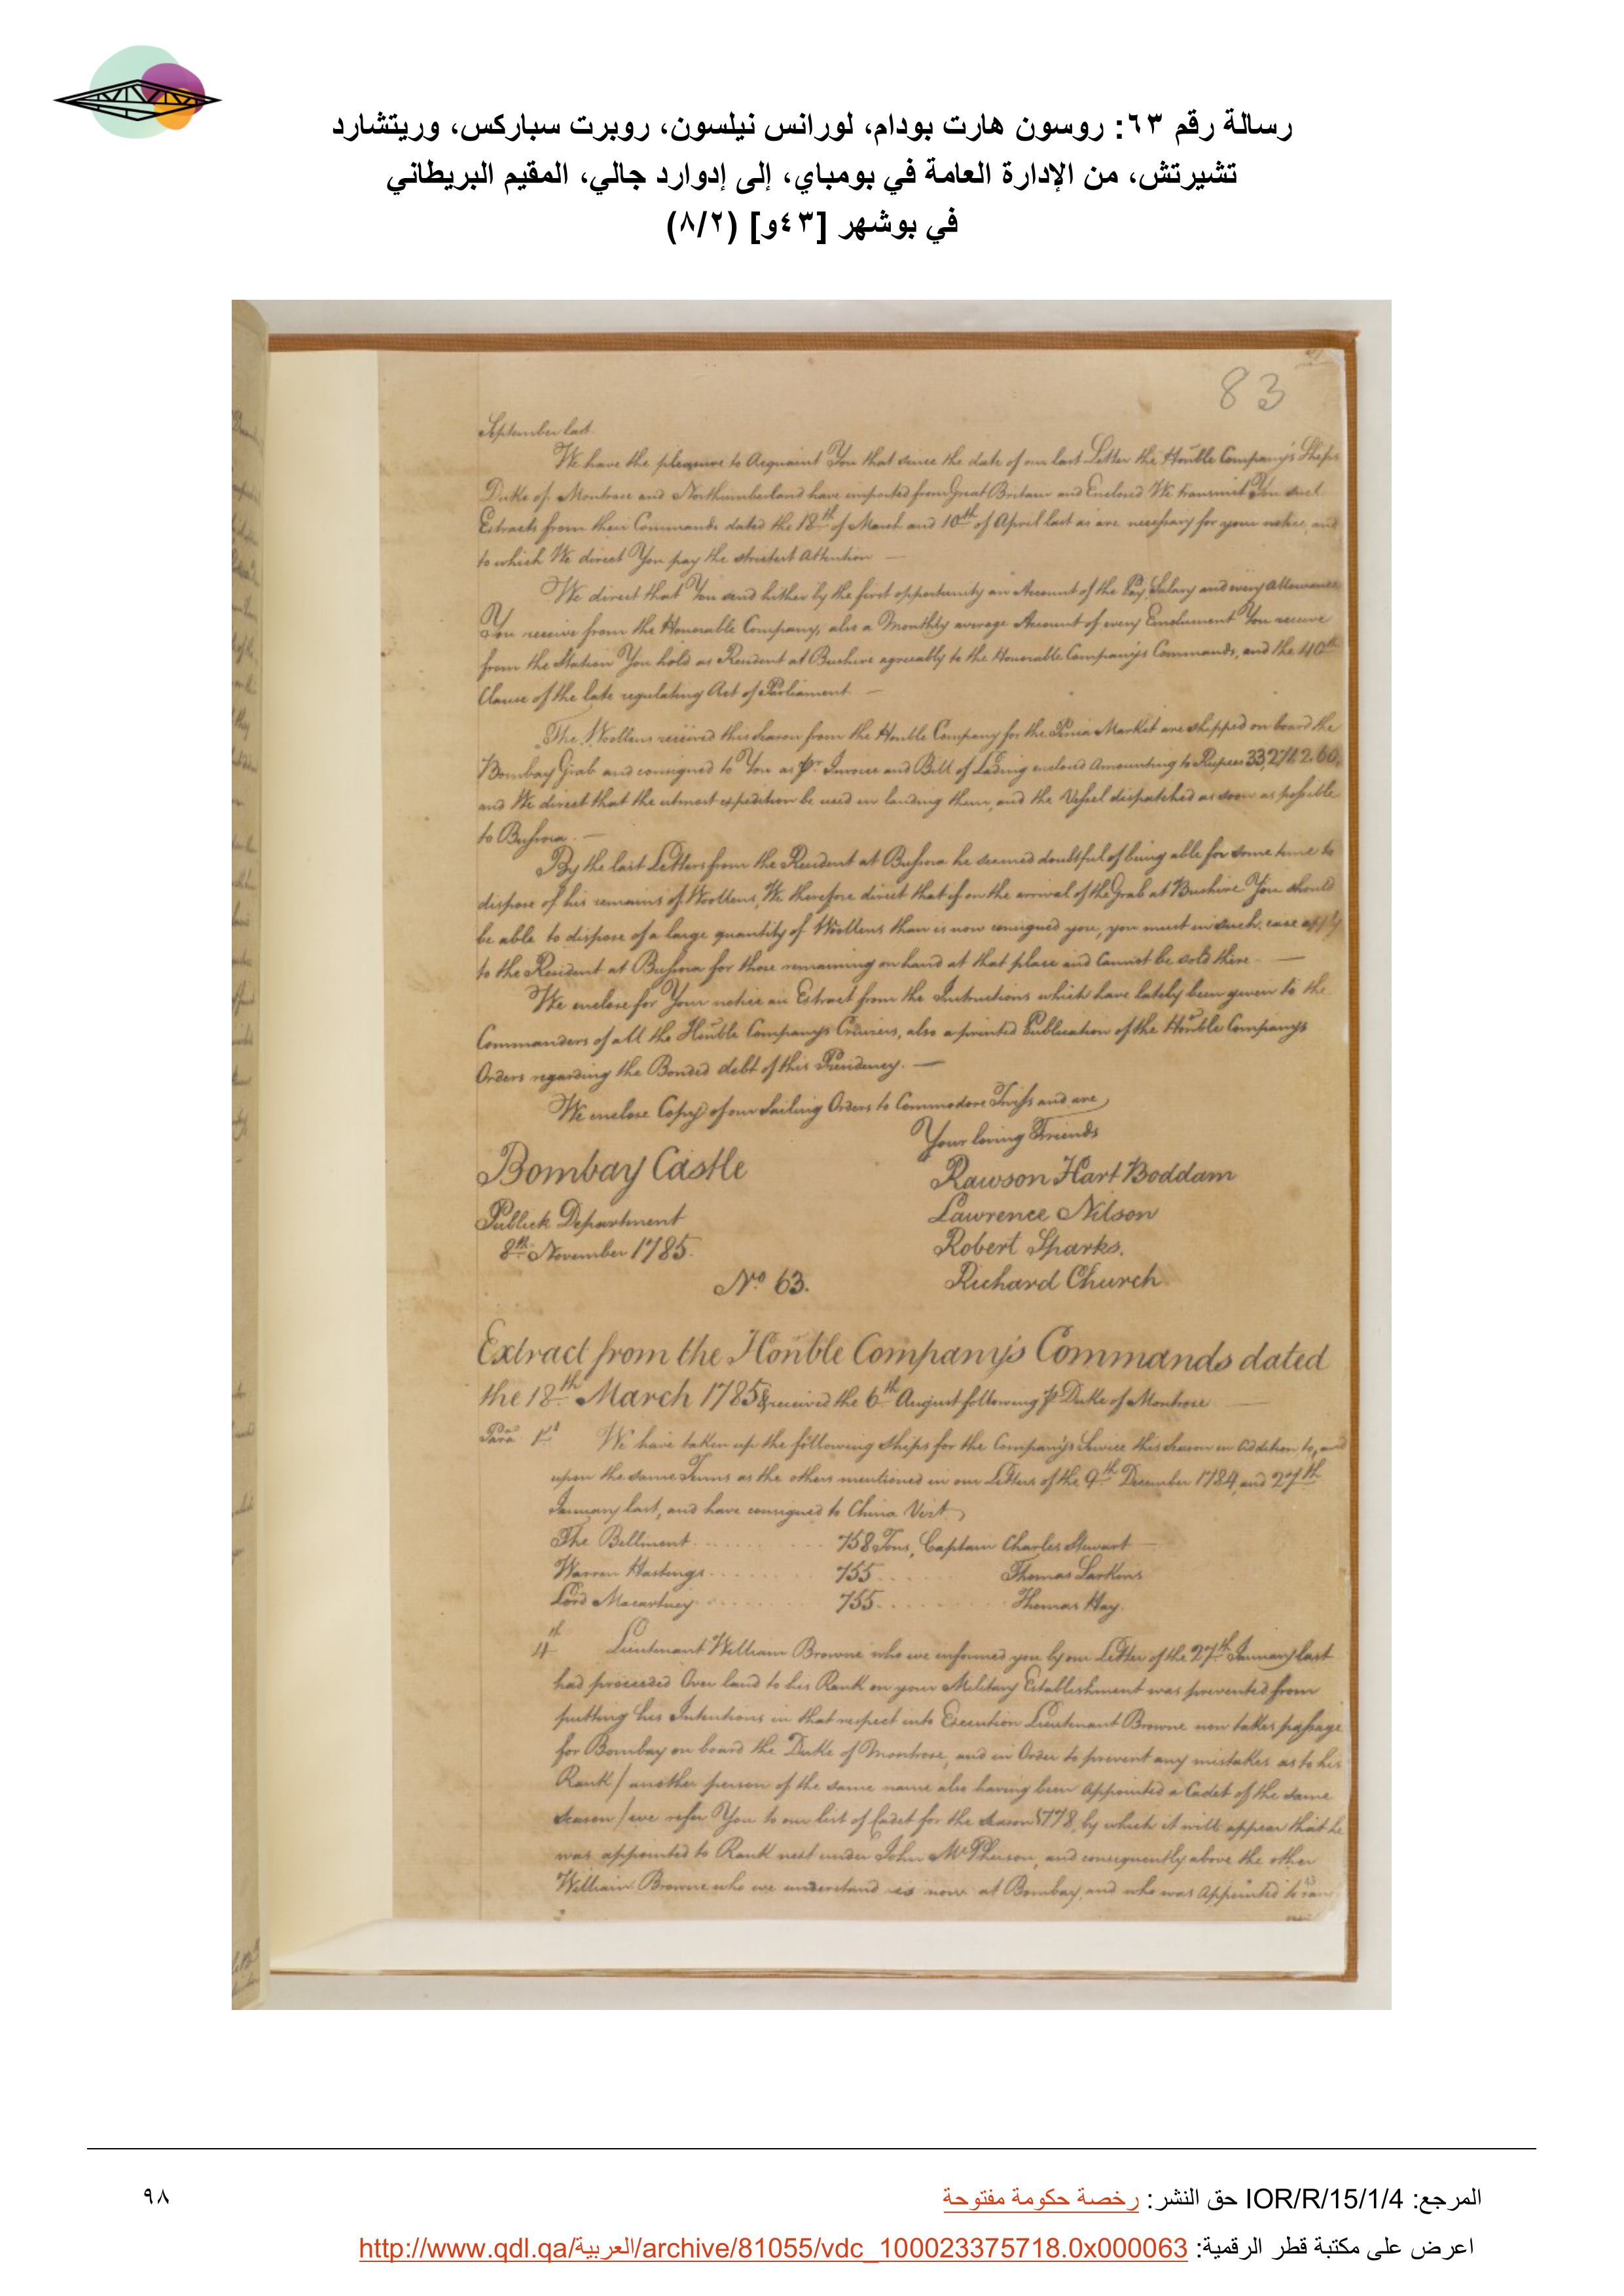 رسالة رقم ٦٣: روسون هارت بودام، لورانس نيلسون، روبرت سباركس، وريتشارد
تشيرتش، من الإدارة العامة في بومباي، إلى إدوارد جالي، المقيم البريطاني
في بوشهر [٤٣و] (٨/٢)
83
September last.
We have the pleasure to Acquaint You that since the date of our last Letter the Honble Company's Ships
Duke of Montrose and Northumberland have imported from Great Britain and Enclosed We transmit You such
Extracts from their Commands dated the 18th of March and 10th of April last as are necessary for your notice, and
to which We direct You pay the strictest Attention —
We direct that You send hither by the first opportunity an Account of the Pay, Salary and every Allowance
You receive from the Honorable Company, also a Monthly average Account of every Emolument You receive
from the Station You hold as Resident at Bushire agreeably to the Honorable Company's Commands, and the 40th
Clause of the late regulating Act of Parliament. —
The Woollens received this season from the Honble Company for the Persia Market are shipped on board the
Bombay Grab and consigned to You as pr. Invoice and Bill of Lading enclosed Amounting to Rupees
and We direct that the utmost expedition be used in landing them, and the Vessel dispatched as soon as possible
to Bussora. —
By the last Letters from the Resident at Bussora he seemed doubtful of being able for some time to
dispose of his remains of Woollens, We therefore direct that if on the arrival of the Grab at Bushire You should
be able to dispose of a large quantity of Woollens than is now consigned you, you must in such case apply
to the Resident at Bussora for those remaining on hand at that place and Cannot be sold there. —
We enclose for Your notice an Extract from the Instructions which have lately been given to the
Commanders of all the Honble Company's Cruizers, also a printed Publication of the Honble Company's
Orders regarding the Bonded debt of this Presidency. —
We enclose Copy of our Sailing Orders to Commodore and are
Your loving Friends
Bombay Castle
Rawson Hart Boddam
Publick Department
Lawrence Nilson
8th November 1785.
Robert Sparks.
No. 63.
Richard Church.
Extract from the Honble Company's Commands dated
the 18th March 1785 & received the 6th August following p Duke of Montrose —
Para 1st We have taken up the following Ships for the Company's Service this Season in Addition to, and
upon the same Terms as the others mentioned in our Letters of the 9th December 1784, and 27th
January last, and have consigned to China Vizt.
The Bellmont . . . . . . . . . 758 Tons, Captain Charles Stewart —
Warren Hastings . . . . . . . . 755 . . . . . . Thomas Larkins
Lord Macartney . . . . . . . . 755 . . . . . . . . . Thomas Hay.
4th Lieutenant William Browne who we informed you by our Letter of the 27th January last
had proceeded Over land to his Rank on your Military Establishment was prevented from
putting his Intentions in that respect into Execution Lieutenant Browne now takes passage
for Bombay on board the Duke of Montrose, and in Order to prevent any mistakes as to his
Rank / another person of the same name also having been Appointed a Cadet of the same
season / we refer You to our list of Cadet for the Season 1778, by which it will appear that he
was appointed to Rank next under John McPherson, and consequently above the other
William Browne who we understand is now at Bombay, and who was Appointed to
المرجع: IOR/R/15/1/4 حق النشر: رخصة حكومة مفتوحة
٩٨
اعرض على مكتبة قطر الرقمية: http://www.qdl.qa/العربية/archive/81055/vdc_100023375718.0x000063